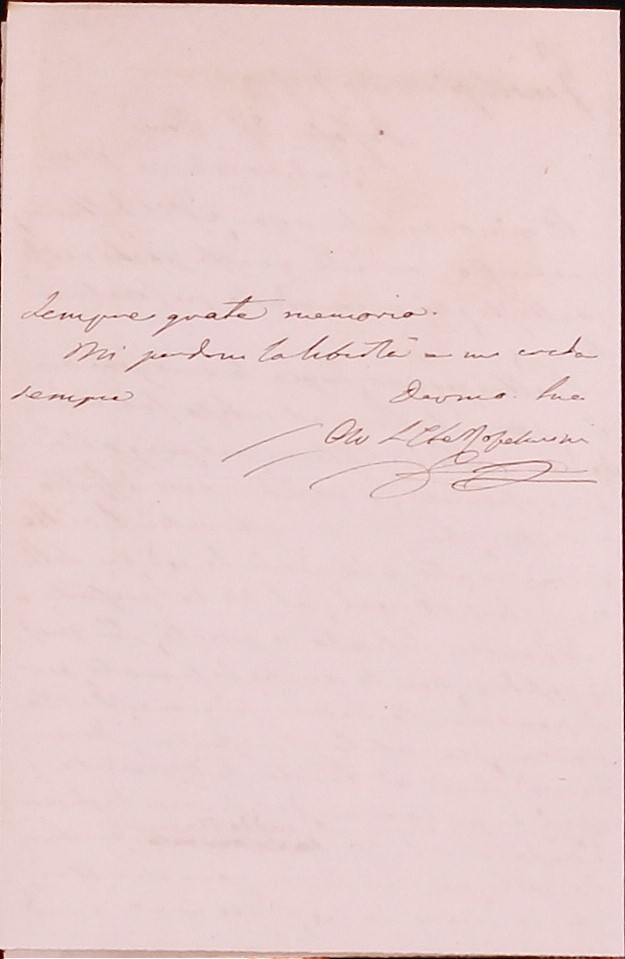 sempre grata memoria.
Mi perdoni la libertà e mi creda
sempre Devmo. Suo